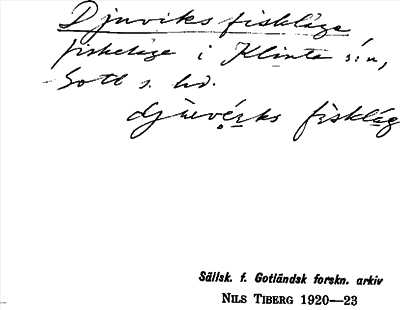 Djuviks fiskläge
fiskeläge i Klinte s:n,
Gotl s. hd.
djùevérks fìskläg
Sällsk. f. Gotländsk forskn. arkiv
NILS TIBERG 1920—23